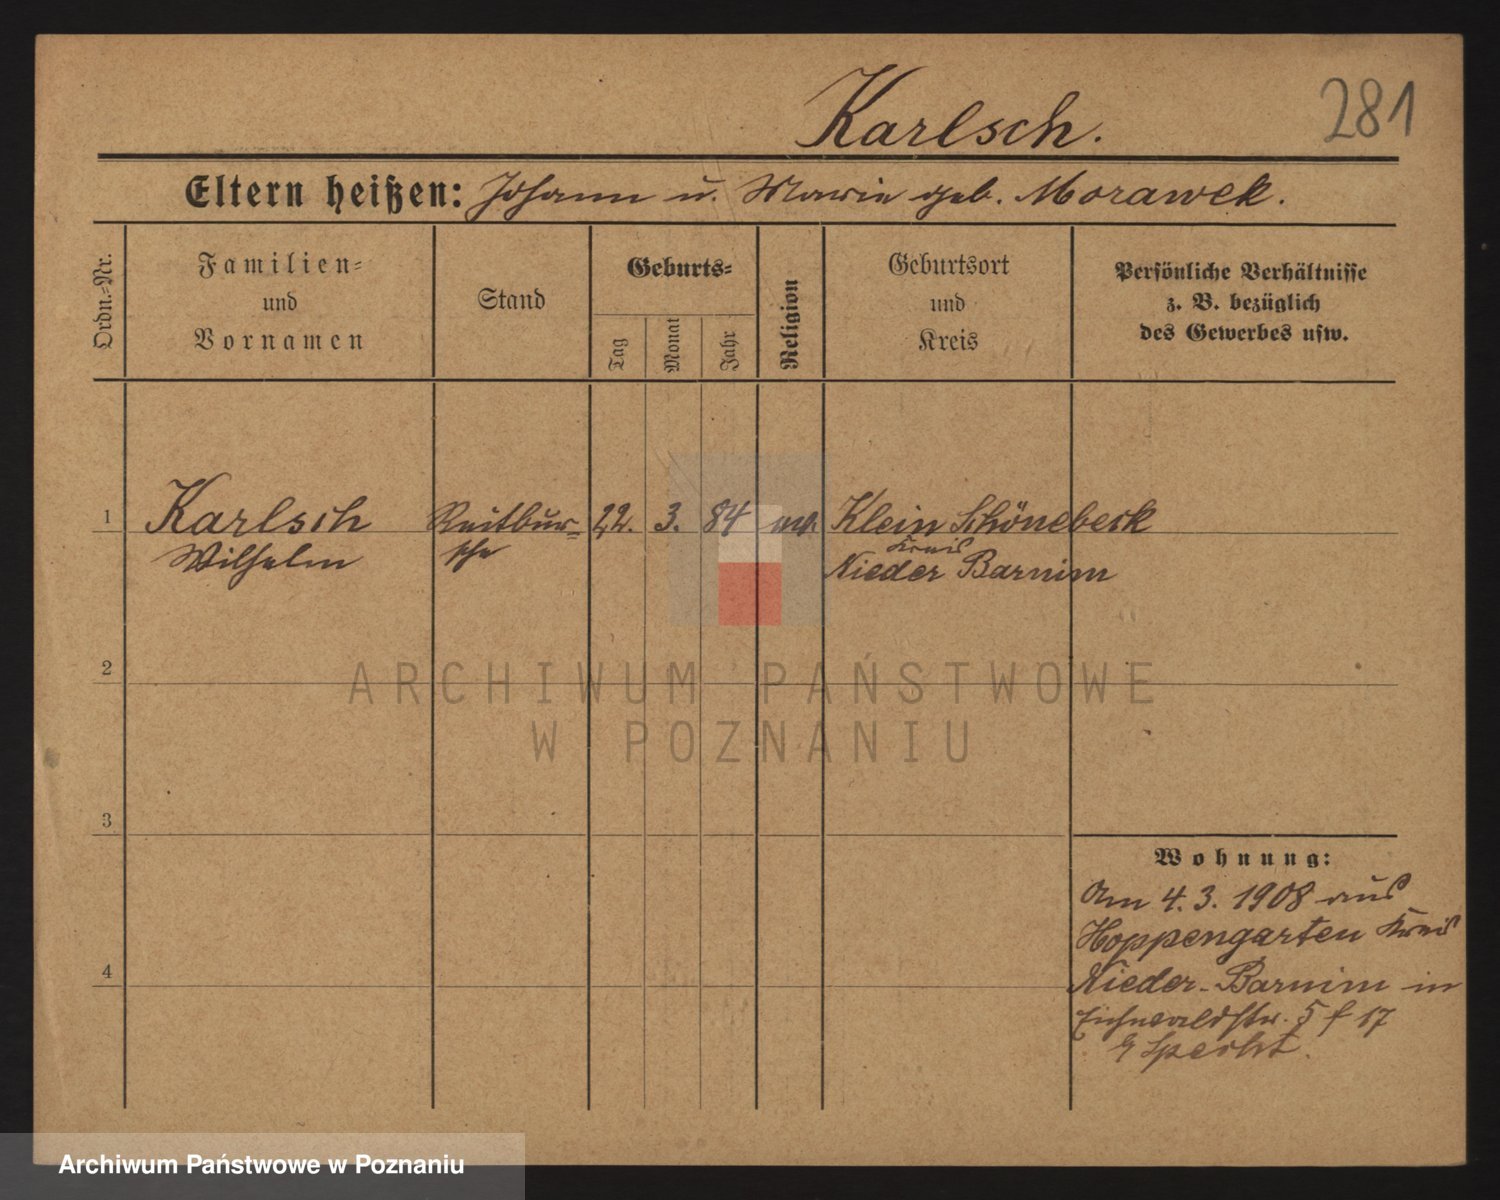 Karlsch.
281
Eltern heißen: Johann u. Marie geb. Morawek.
Ordn.-Nr.
Familien-
und
Vornamen
Stand
Geburts-
Tag
Monat
Jahr
Religion
Geburtsort
und
Kreis
Persönliche Verhältnisse
z. B. bezüglich
des Gewerbes usw.
1
Karlsch
Wilhelm
Reitbur-
sche
22.
3.
84
Klein Schönebeck
Kreis
Nieder Barnim
2
3
4
Wohnung:
Am 4. 3. 1908 aus
Hoppengarten Kreis
Nieder-Barnim in
Eichwaldstr. 5 f 17
Specht.
ARCHIWUM PAŃSTWOWE
W POZNANIU
Archiwum Państwowe w Poznaniu